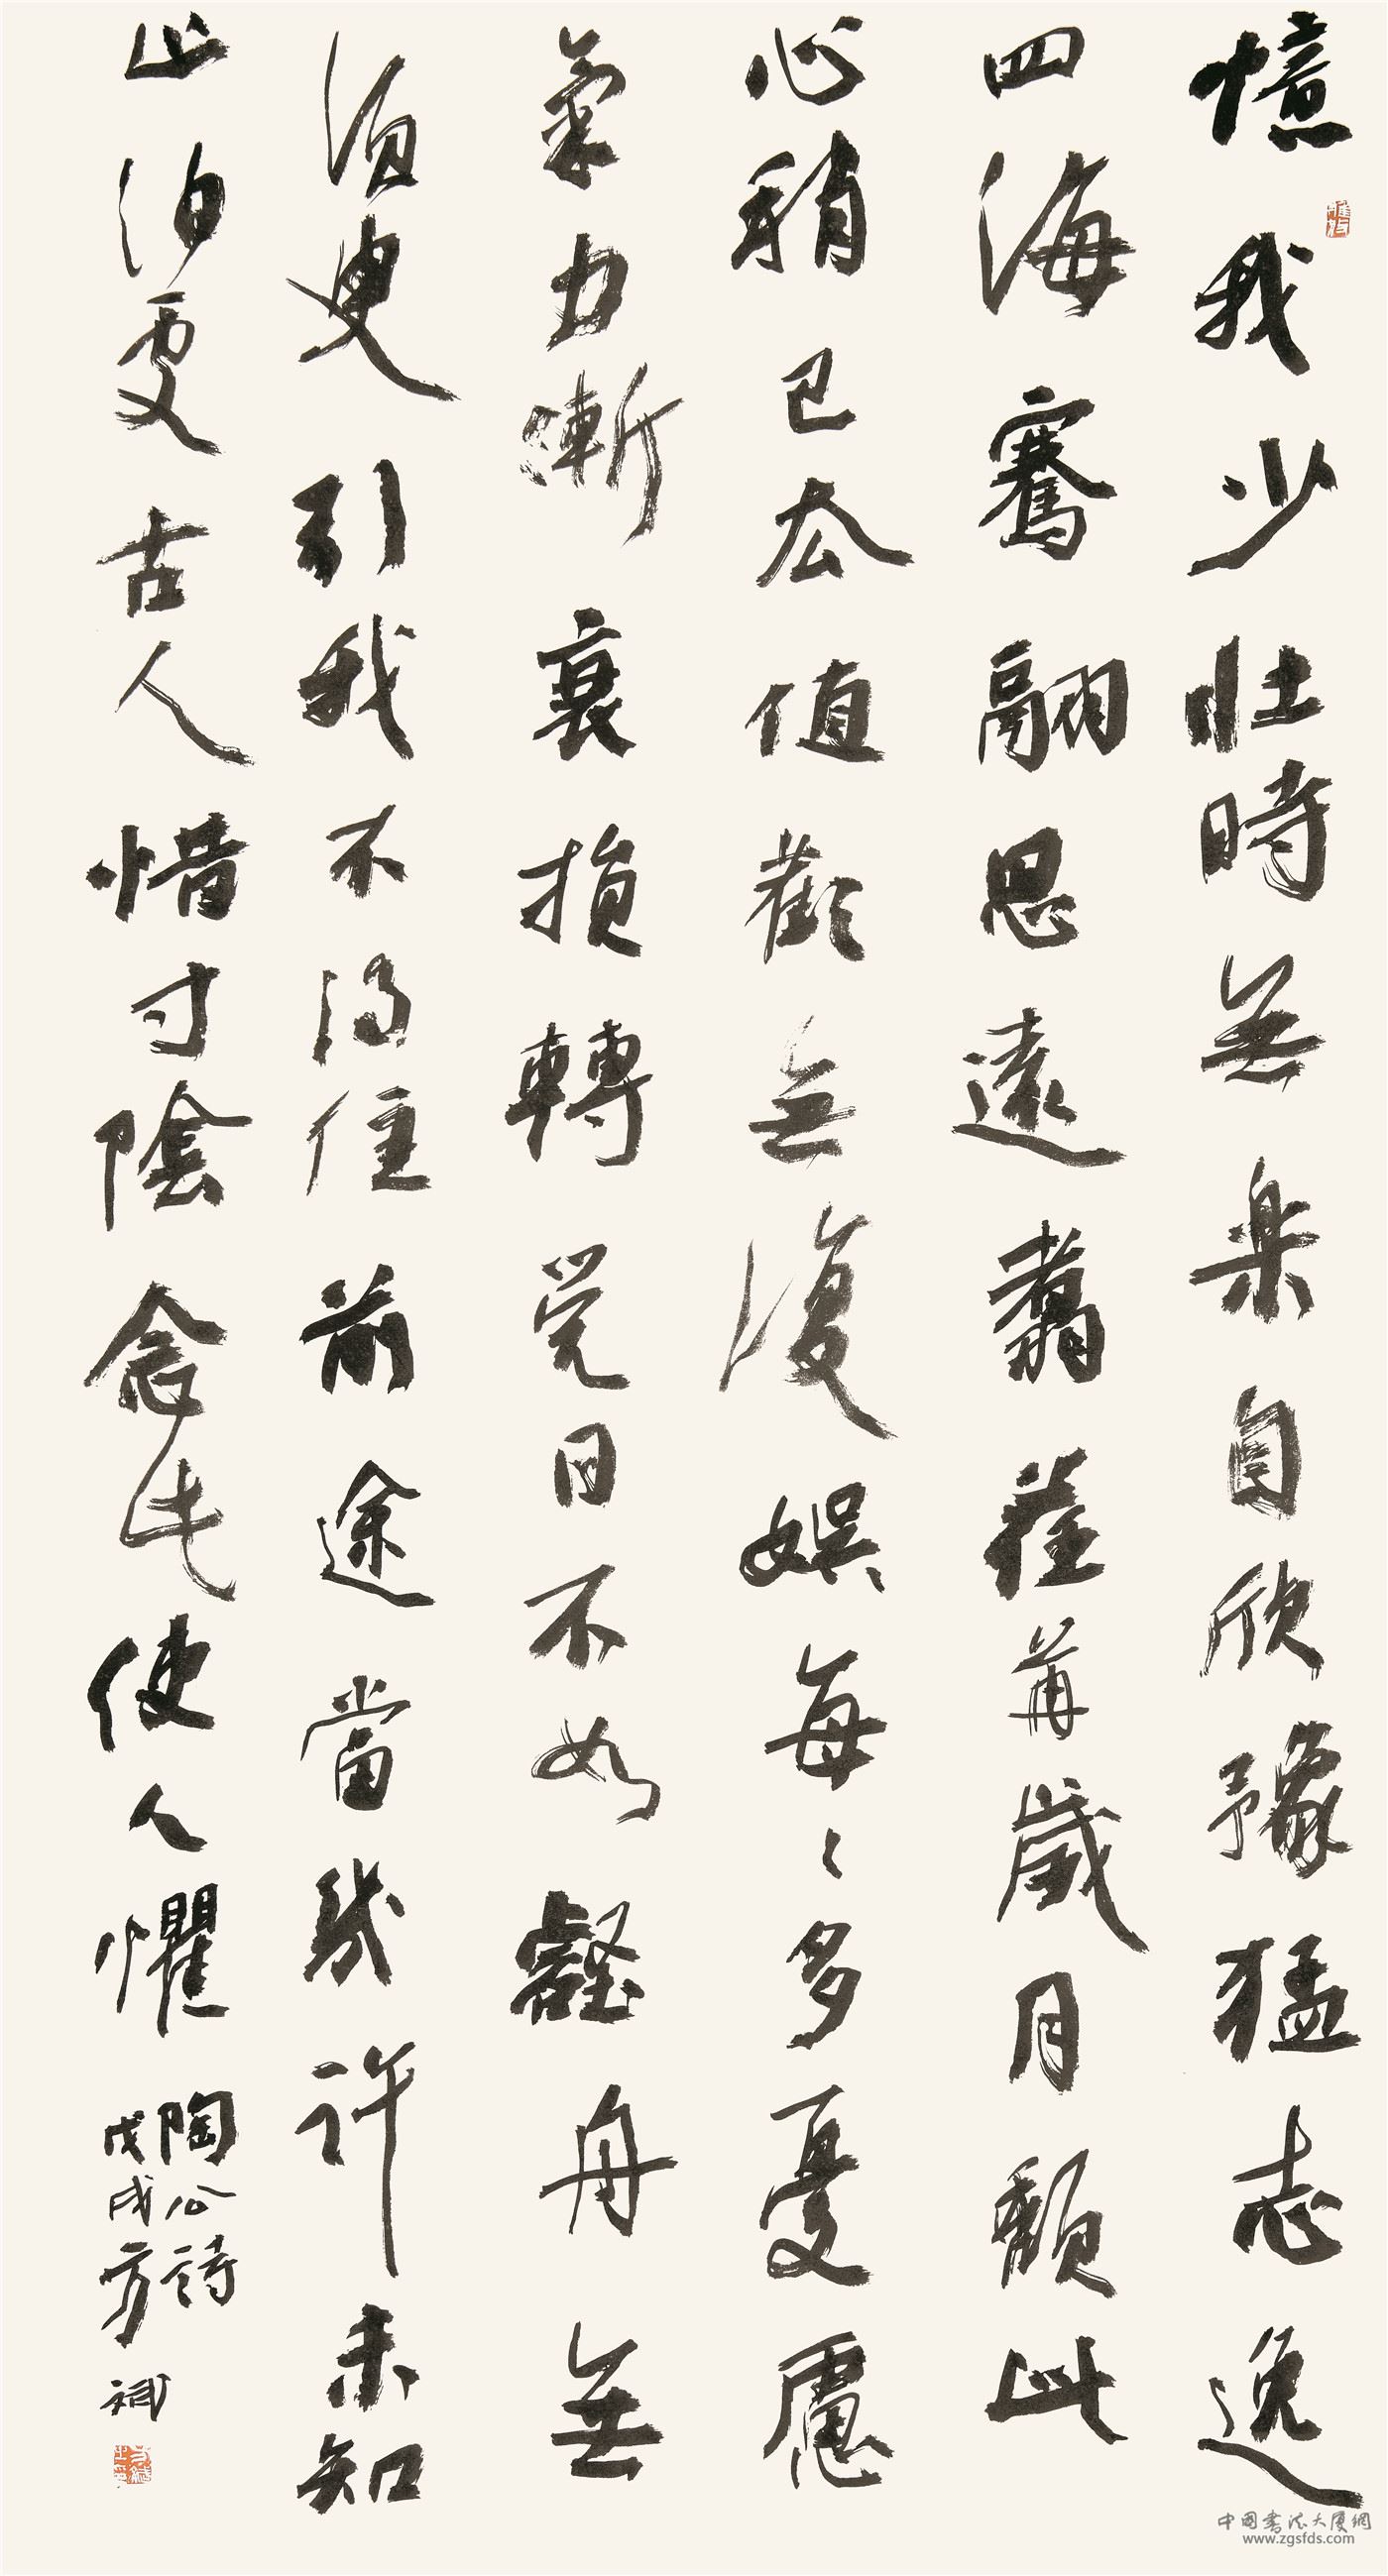 憶我少壯時無楽自欣豫猛志逸
四海騫翮思遠翥荏苒歲月頹此
心稍已去值歡無復娛每々多憂慮
氣力漸衰損轉覺日不如壑舟無
須臾引我不得住前途當幾許未知
止泊處古人惜寸陰念此使人懼
陶公詩
戊戌方
中國書法大廈網
www.zgsfds.com